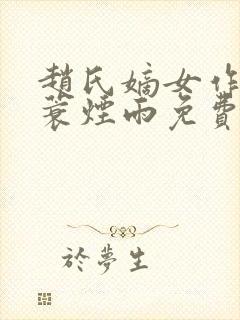 趙氏嫡女作
蓑煙雨免費
於夢生